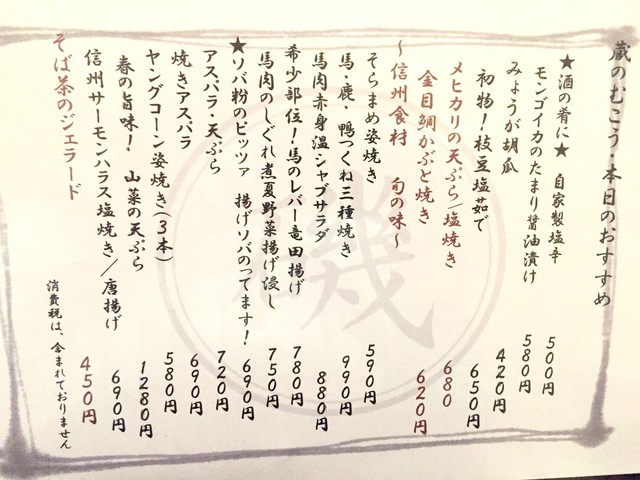 蔵のむこう・本日のおすすめ
★酒の肴に★ 自家製塩辛 500円
モンゴイカのたまり醤油漬け 580円
みょうが胡瓜 420円
初物!枝豆塩茹で 650円
メヒカリの天ぷら/塩焼き 680
金目鯛かぶと焼き 620円
~信州食村 旬の味~
そらまめ姿焼き 590円
馬・鹿・鴨つくね三種焼き 990円
馬肉赤身温シャブサラダ 880円
希少部位!馬のレバー竜田揚げ 780円
馬肉のしぐれ煮夏野菜揚げ浸し 750円
★ソバ粉のピッツァ 揚げソバのってます! 690円
アスパラ・天ぷら 720円
焼きアスパラ 690円
ヤングコーン姿焼き(3本) 580円
春の旨味! 山菜の天ぷら 1280円
信州サーモンハラス塩焼き/唐揚げ 690円
そば茶のジェラード 450円
消費税は、含まれておりません
磯